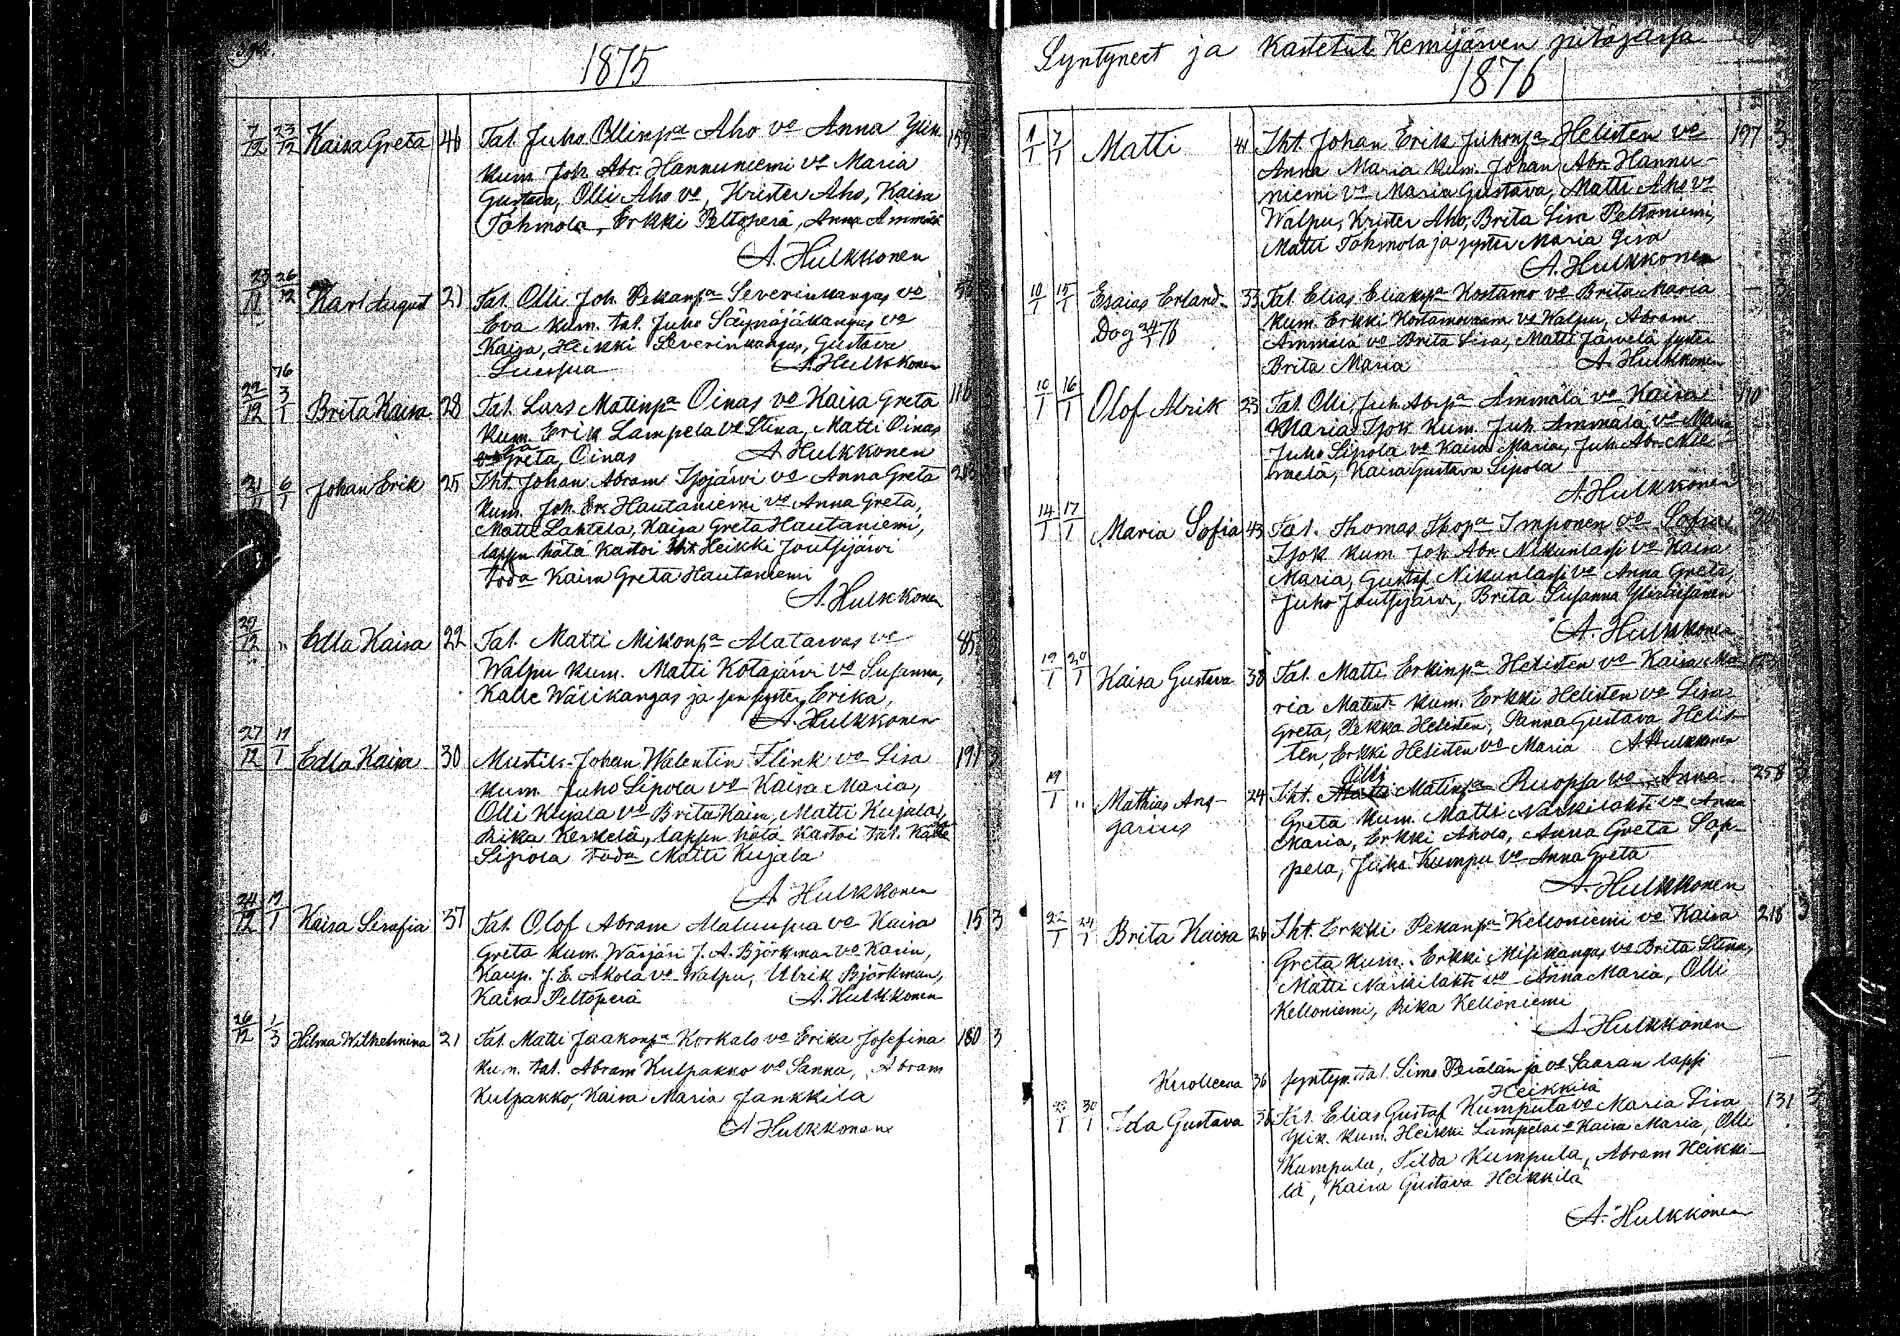 1875
7/12 23/12 Kaisa Greta 46 Tal. Juho Ollinpa Aho vo Anna Ylik.
Kum. Joh. Abr. Hannuniemi vo Maria
Gustava, Olli Aho vo, Krister Aho, Kaisa
Tohmola, Erkki Peltoperä, Anna Ammälä
A. Hulkkonen
26/12 Karl August 21 Tal. Olli Joh. Pekanpa Severinkangas vo
Eva kum. tal. Juho Säynäjäkangas vo
Kaisa, Heikki Severinkangas, Gustava
Luusua A. Hulkkonen
76
22/12 3/1 Brita Kaisa 28 Tal. Lars Matinpa Oinas vo Kaisa Greta 116
Kum. Erik Lampela vo Stina, Matti Oinas
Greta Oinas A. Hulkkonen
6/1 Johan Erik 25 Tht. Johan Abram Isojärvi vo Anna Greta
Kum. Joh. Er. Hautaniemi vo Anna Greta,
Matti Lahtela, Kaisa Greta Hautaniemi,
lapsen hätä kastoi tht Heikki Joutsijärvi
toda Kaisa Greta Hautaniemi
A. Hulkkonen
29/12 " Edla Kaisa 22 Tal. Matti Mikonpa Alatarvas vo 85 3
Walpu kum. Matti Kotajärvi vo Susanna,
Kalle Wälikangas ja sen syster Erika,
A. Hulkkonen
27/12 17/1 Edla Kaisa 30 Mustil. Johan Walentin Flink vo Lisa 191 3
kum. Juho Sipola vo Kaisa Maria,
Olli Kujala vo Brita Kaisa, Matti Kujala,
Rika Kerkelä, lapsen hätä kastoi tal. Kalle
Sipola toda Matti Kujala
A. Hulkkonen
24/12 17/1 Kaisa Serafia 37 Tal. Olof Abram Alaluusua vo Kaisa 15 3
Greta kum. Wärjäri J. A. Björkman vo Karin,
Kaup. J. E. Akola vo Walpu, Ulrik Björkman,
Kaisa Peltoperä A. Hulkkonen
26/12 1/3 Hilma Wilhelmina 21 Tal. Matti Jaakonpa Korkalo vo Erika Josefina 180 3
kum. tal. Abram Kulpakko vo Sanna, Abram
Kulpakko, Kaisa Maria Jankkila
A Hulkkonen
Syntyneet ja Kastetut Kemijärven pitäjässä
1876
1/1 7/1 Matti 41 Tht. Johan Erik Juhonpa Helisten vo 197 3
Anna Maria kum. Johan Abr. Hannu-
niemi vo Maria Gustava, Matti Aho vo
Walpu, Krister Aho, Brita Lisa Peltoniemi,
Matti Tohmola ja syster Maria Lisa
A. Hulkkonen
10/1 15/1 Esaias Erland 33 Tal. Elias Eliaknpa Kostamo vo Brita Maria
Dog 24/1 76 Kum. Erkki Kostamovaara vo Walpu, Abram
Ammälä vo Brita Lisa, Matti Järvelä syster
Brita Maria A. Hulkkonen
10/1 16/1 Olof Alrik 23 Tal. Olli Juh. Abrpa Ämmälä vo Kaisa 110
Maria Isok kum. Juh. Ämmälä vo Maria
Juho Sipola vo Kaisa Maria, Juh. Abr. Mie-
tnelä, Kaisa Gustava Sipola
A. Hulkkonen
14/1 17/1 Maria Sofia 43 Tal. Thomas Thopa Imponen vo Sofia
Isok kum. Joh. Abr. Nikunlassi vo Kaisa
Maria, Gustaf Nikunlassi vo Anna Greta,
Juho Joutsijärvi, Brita Susanna
A. Hulkkonen
19/1 20/1 Kaisa Gustava 38 Tal. Matti Erkinpa Helisten vo Kaisa Ma-
ria Matint. Kum. Erkki Helisten vo Lisa
Greta, Pekka Helisten, Sanna Gustava Helis-
ten, Erkki Helisten vo Maria A. Hulkkonen
Olli
19/1 " Mathias Ans- 24 Tht. Matti Matinpa Ruopsa vo Anna 258 3
garius Greta kum. Matti Närkilahti vo Anna
Maria, Erkki Ahola, Anna Greta Sop-
pela, Juho Kumpu vo Anna Greta
A. Hulkkonen
22/1 24/1 Brita Kaisa 26 Tht. Erkki Pekanpa Kelloniemi vo Kaisa 218 3
Greta kum. Erkki Misikangas vo Brita Stina,
Matti Närkilahti vo Anna Maria, Olli
Kelloniemi, Rika Kelloniemi
A. Hulkkonen
Kuolleena 36 syntyn. tal. Simo Perälän ja vo Saaran lapsi
Heikkilä
23/1 30/1 Ida Gustava 36 Tal. Elias Gustaf Kumpula vo Maria Lisa 131 3
Ylik. kum. Heikki Lampela vo Kaisa Maria, Olli
Kumpula, Tilda Kumpula, Abram Heikki-
lä, Kaisa Gustava Heikkilä
A. Hulkkonen